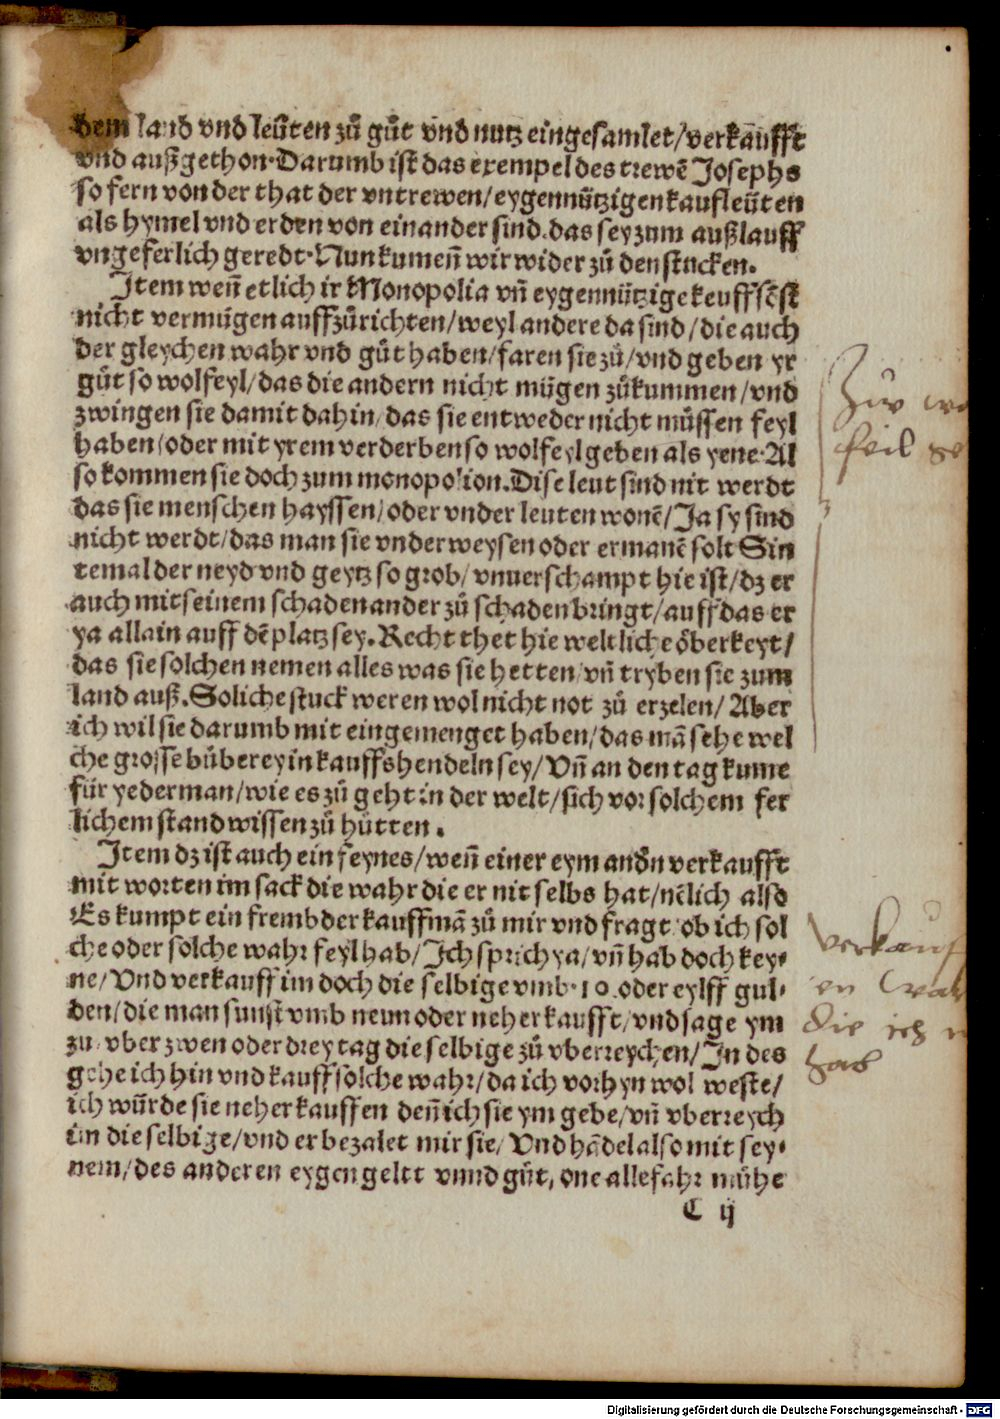 dem land vnd leüten zů gůt vnd nutz eingesamlet/verkaufft
vnd außgethon. Darumb ist das exempel des trewē Josephs
so fern von der that der vntrewen/eygennützigen kaufleüten
als hymel vnd erden von einander sind. das sey zum außlauff
vngeferlich geredt. Nun kumen̄ wir wider zů den stucken.
Item wen̄ etlich ir Monopolia vn̄ eygennützige keuff sēst
nicht vermügen auffzůrichten/weyl andere da sind/die auch
der gleychen wahr vnd gůt haben/faren sie zů/vnd geben yr
gůt so wolfeyl/das die andern nicht mügen zůkummen/vnd
zwingen sie damit dahin/das sie entweder nicht müssen feyl
haben/oder mit yrem verderben so wolfeyl geben als yene. Al
so kommen sie doch zum monopolion. Dise leut sind nit werdt
das sie menschen hayssen/oder vnder leuten wonē/Ja sy sind
nicht werdt/das man sie vnderweysen oder ermanē solt Sin
temal der neyd vnd geytz so grob/vnuerschampt hie ist/dz er
auch mit seinem schaden ander zů schaden bringt/auff das er
ya allain auff dē platz sey. Recht thet hie weltliche öberkeyt/
das sie solchen nemen alles was sie hetten/vn̄ tryben sie zum
land auß. Soliche stuck weren wol nicht not zů erzelen/Aber
ich wil sie darumb mit eingemenget haben/das mā sehe wel
che grosse bůberey in kauffshendeln sey/Vn̄ an den tag kume
für yederman/wie es zů geht in der welt/sich vor solchem fer
lichem stand wissen zů hütten.
Item dz ist auch ein feynes/wen̄ einer eym andn̄ verkaufft
mit worten im sack die wahr die er nit selbs hat/nēlich also
Es kumpt ein frembder kauffmā zů mir vnd fragt/ob ich sol
che oder solche wahr feyl hab/Ich sprich ya/vn̄ hab doch key-
ne/Vnd verkauff im doch die selbige vmb .10. oder eylff gul-
den/die man sunst vmb neun oder neher kaufft/vnd sage ym
zu/vber zwen oder drey tag die selbige zů vberreychen/In des
gehe ich hin vnd kauff solche wahr/da ich vorhyn wol weste/
ich würde sie neher kauffen den̄ ich sie ym gebe/vn̄ vberreych
im die selbige/vnd er bezalet mir sie/Vnd hādel also mit sey-
nem/des anderen eygen geltt vnnd gůt, one alle fahr mühe
C ij
Zuv
feil
verkauf
en
die ich
hab
Digitalisierung gefördert durch die Deutsche Forschungsgemeinschaft - DFG